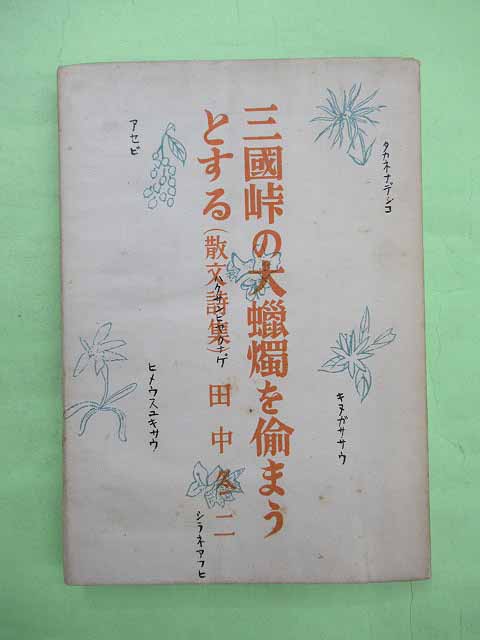 三國峠の大蠟燭を偸まう
とする（散文詩集）田中冬二
タカネナデシコ
アセビ
ハクサンシャクナゲ
キヌガササウ
ヒメウスユキサウ
シラネアフヒ